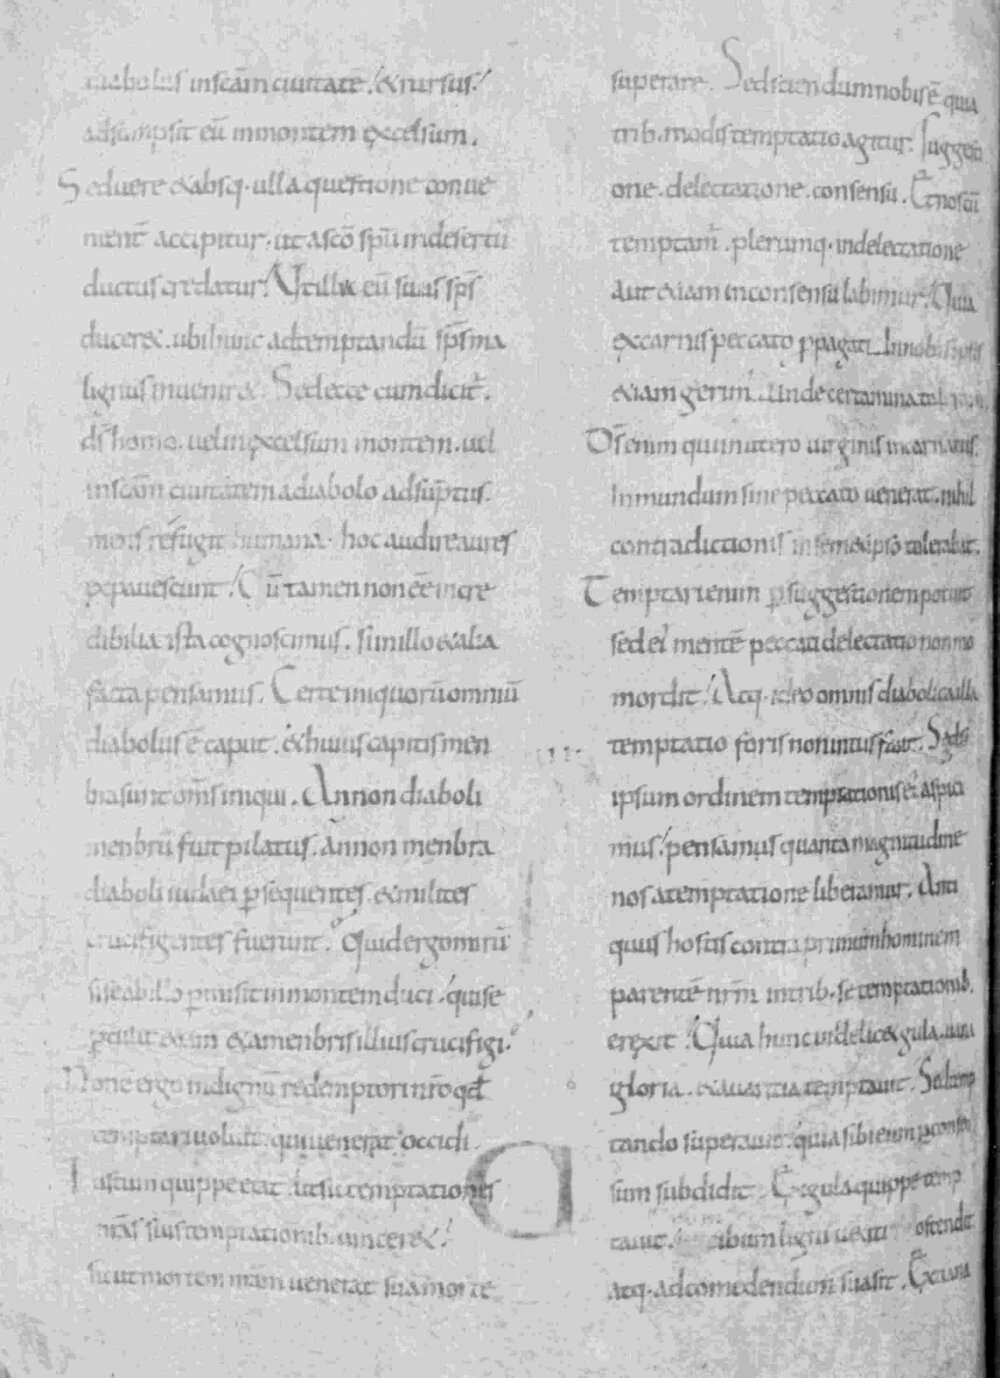 diabolus inscām ciuitatē. & rursus.
adsumpsit eū inmontem excelsum.
Seduere &absq. ulla questione conue
nient̄ accipitur. ut ascō sp̄u indesertū
ductus credatur. Ut illuc eū suus sp̄s
ducer&. ubi hunc adtemptandū sp̄s ma
lignus inuenir&. Sed ecce cum dicit̄.
d̄s homo. uel inexcelsum montem. uel
inscām ciuitatem adiabolo adsūptus.
mens refugit humana. hoc audire aures
pepauescunt. Cū tamen non eē incre
dibilia ista cognoscimus. si in illo &alia
facta pensamus. Certe iniquorū omniū
diabolus ē caput. & huius capitis men
bra sunt om̄s iniqui. An non diaboli
menbrū fuit pilatus. an non menbra
diaboli iudaei p̱sequentes. & milites
crucifigentes fuerunt. Quid ergo mirū
si se abillo p̱misit inmontem duci. qui se
p̱tulit &iam &amenbris illius crucifigi.
Non ē ergo indignū redemptori nr̄o qđ
temptari uoluit. qui uenerat occidi.
Iustum quippe erat. ut sic temptationes
nr̄as suis temptationib. uincer&.
sicut mortem nr̄am uenerat sua morte
superare. Sed sciendum nobis ē. quia
trib. modis temptatio agitur. Suggesti
one. delectatione. consensu. Et nos cū
temptam̄. plerumq. indelectatione
aut &iam inconsensu labimur. Quia
excarnis peccato p̱pagati. Innobis ipsis
&iam gerim̄. Unde certamina
D̄s enim qui inutero uirginis incarnatus.
Inmundum sine peccato uenerat. nihil
contradictionis insemedipso tolerabat.
Temptari enim p̱ suggestionem potuit
sed ei mentē peccati delectatio non mo
mordit. Atq. ideo omnis diabolica illa
temptatio foris non intus fuit. Sed si
ipsum ordinem temptationis ei aspici
mus. pensamus quanta magnitudine
nos atemptatione liberamur. Anti
quus hostis contra primum hominem
parentē nr̄m intrib. se temptationib.
erexit. Quia hunc uidelic& gula. uana
gloria. & auaritia temptauit. Sed temp
tando superauit. quia sibi eum p̱ consen
sum subdidit. Ex gula quippe temp
tauit. cibum ligni uetiti ostendit
atq. adcomedendum suasit. Ex uana